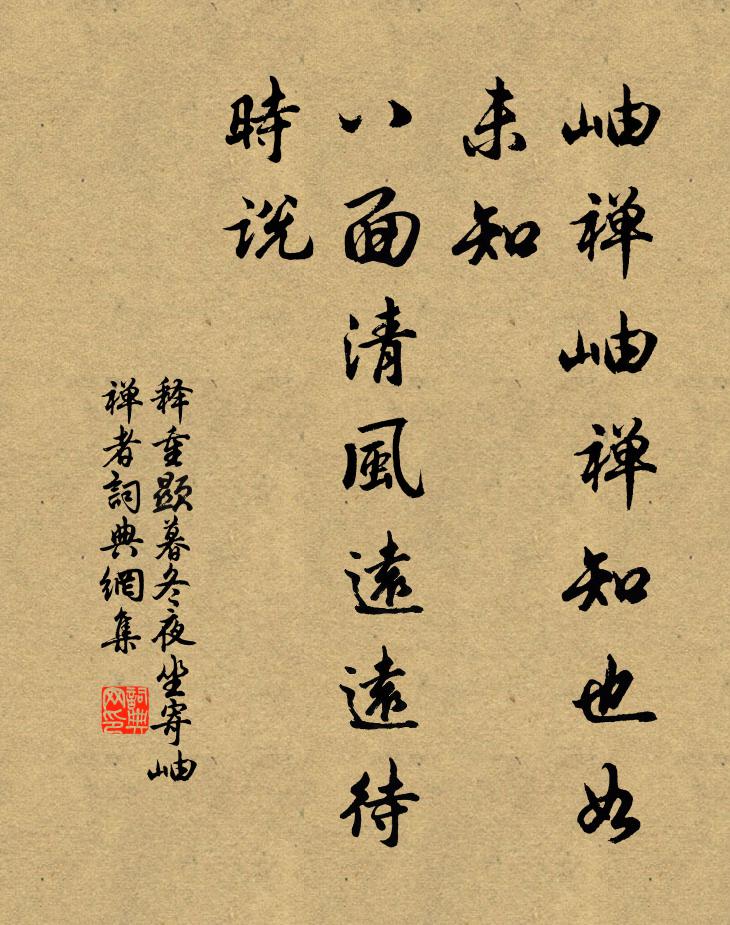 岫禅岫禅知也如
未知
八面清風遠遠待
時说
释重顯暮冬夜坐寄岫
禅者詞典網集
詞典
网印